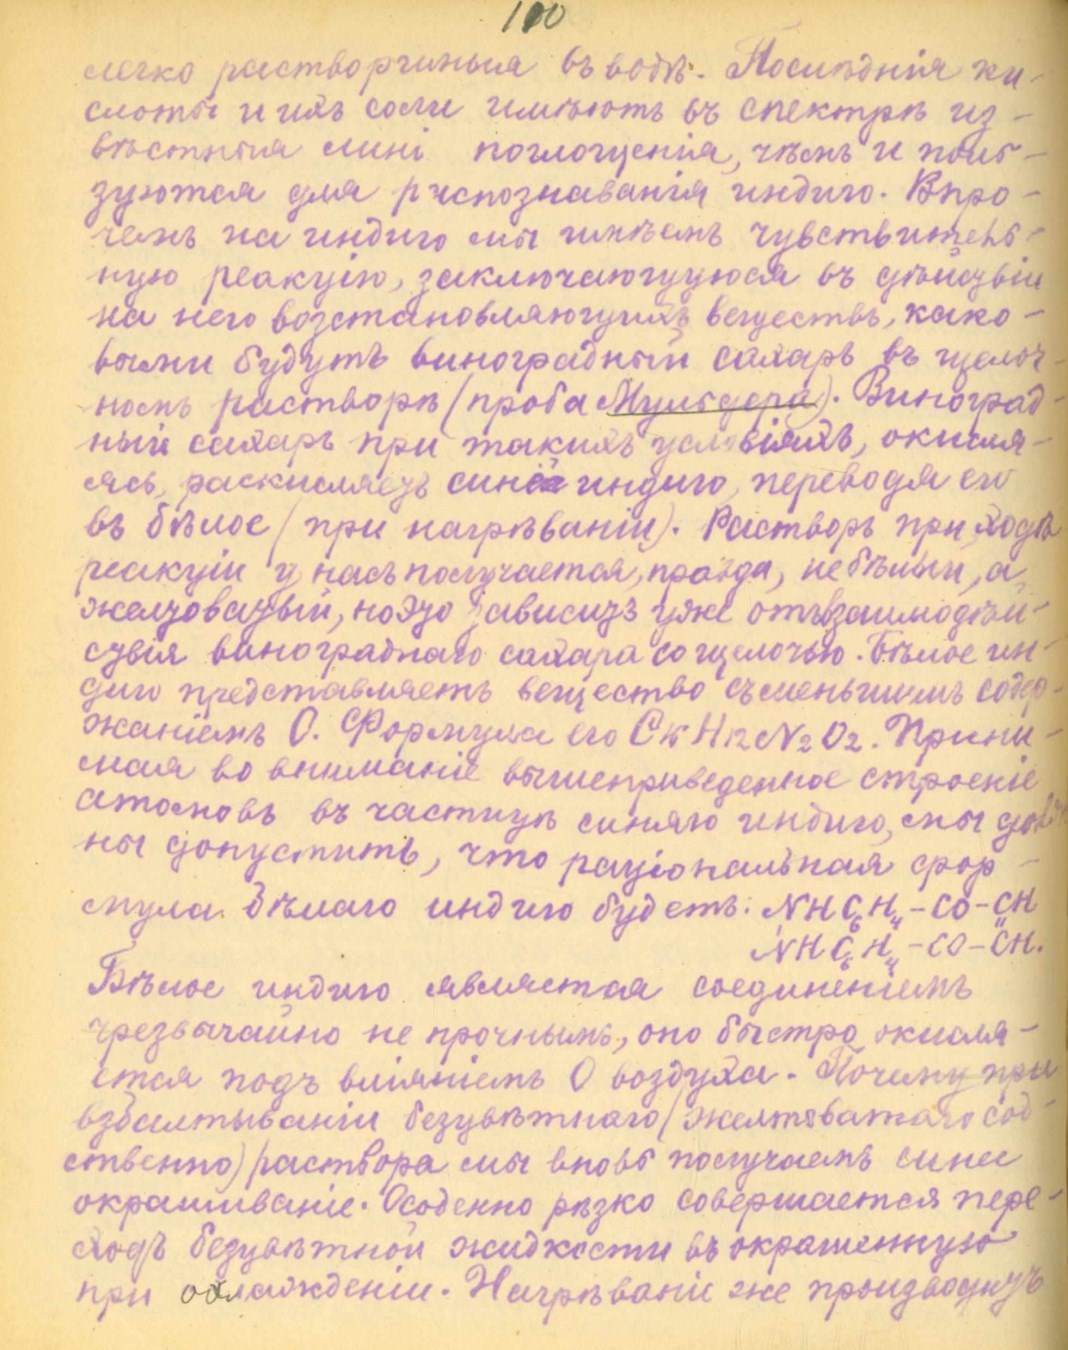 100
легко растворимыя въ водѣ. Послѣднія ки-
слоты и ихъ соли имѣютъ въ спектрѣ из-
вѣстныя лині поглощенія, чѣмъ и поль-
зуются для распознаванія индиго. Впро-
чемъ на индиго мы имѣемъ чувствитель-
ную реакцію, заключающуюся въ дѣйствіи
на него возстановляющихъ веществъ, како-
выми будутъ виноградный сахаръ въ щелоч-
номъ растворѣ (проба Мульдера). Виноград-
ный сахаръ при такихъ условіяхъ, окисля-
ясь, раскисляетъ синее индиго, переводя его
въ бѣлое (при нагрѣваніи). Растворъ при ходѣ
реакціи у насъ получается, правда, не бѣлый, а
желтоватый, но это зависитъ уже отъ взаимодѣй-
ствія винограднаго сахара со щелочью. Бѣлое ин-
диго представляетъ вещество съ меньшимъ содер-
жаніемъ О. Формула его C16 H12 N2 O2. Прини-
мая во вниманіе вышеприведенное строеніе
атомовъ въ частицѣ синяго индиго, мы долж
ны допустить, что раціональная фор-
мула бѣлаго индиго будетъ: NH C6 H4 – CO – CH
NH C6 H4 – CO – CH.
Бѣлое индиго является соединеніемъ
чрезвычайно не прочнымъ, оно быстро окисля-
ется подъ вліяніемъ О воздуха. Почему при
взбалтываніи безцвѣтнаго (желтоватаго соб-
ственно) раствора мы вновь получаемъ синее
окрашиваніе. Особенно рѣзко совершается пере-
ходъ безцвѣтной жидкости въ окрашенную
при охлажденіи. Нагрѣваніе же производитъ